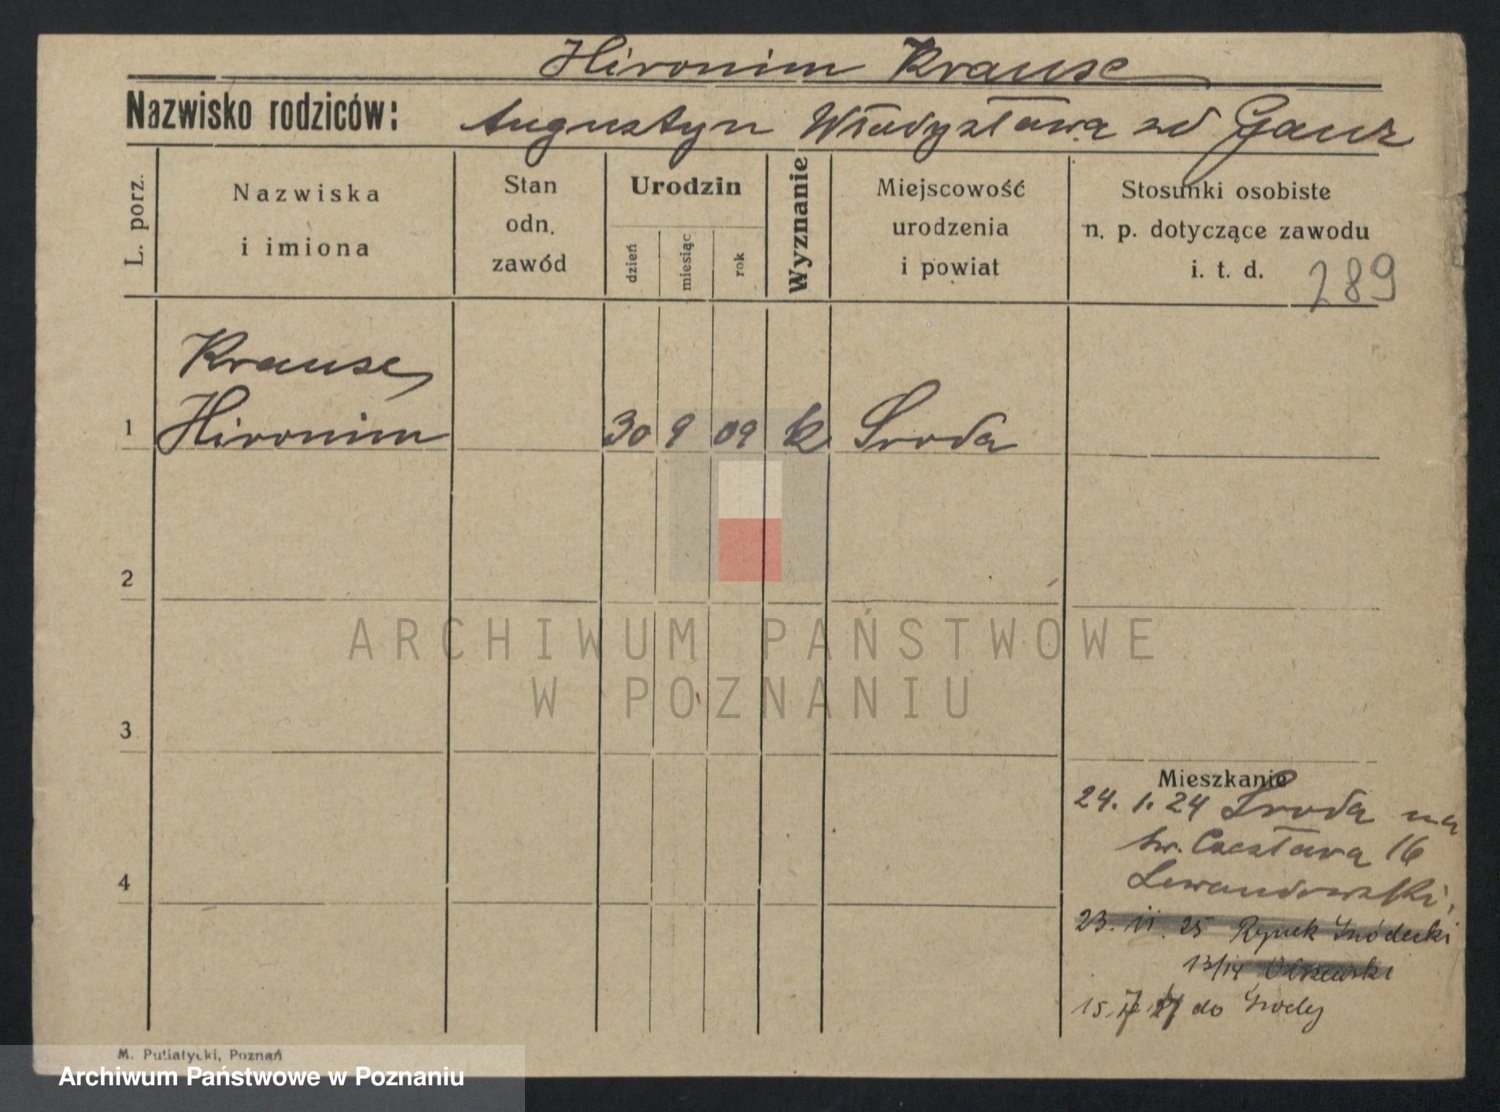 Hironim Krause
Nazwisko rodziców: Augustyn Władysława zd Ganz
L. porz.
Nazwiska
i imiona
Stan
odn.
zawód
Urodzin
dzień
miesiąc
rok
Wyznanie
Miejscowość
urodzenia
i powiat
Stosunki osobiste
n. p. dotyczące zawodu
i. t. d.
289
Krause
1 Hironim 30 9 09 k Sroda
2
ARCHIWUM PAŃSTWOWE
W POZNANIU
3
Mieszkanie
24. 1. 24 Sroda na
św. Czesława 16
Lewandowski
4
23. 11. 25 Rynek Śródecki
13/14
do Środy
M. Putiatycki, Poznań
Archiwum Państwowe w Poznaniu